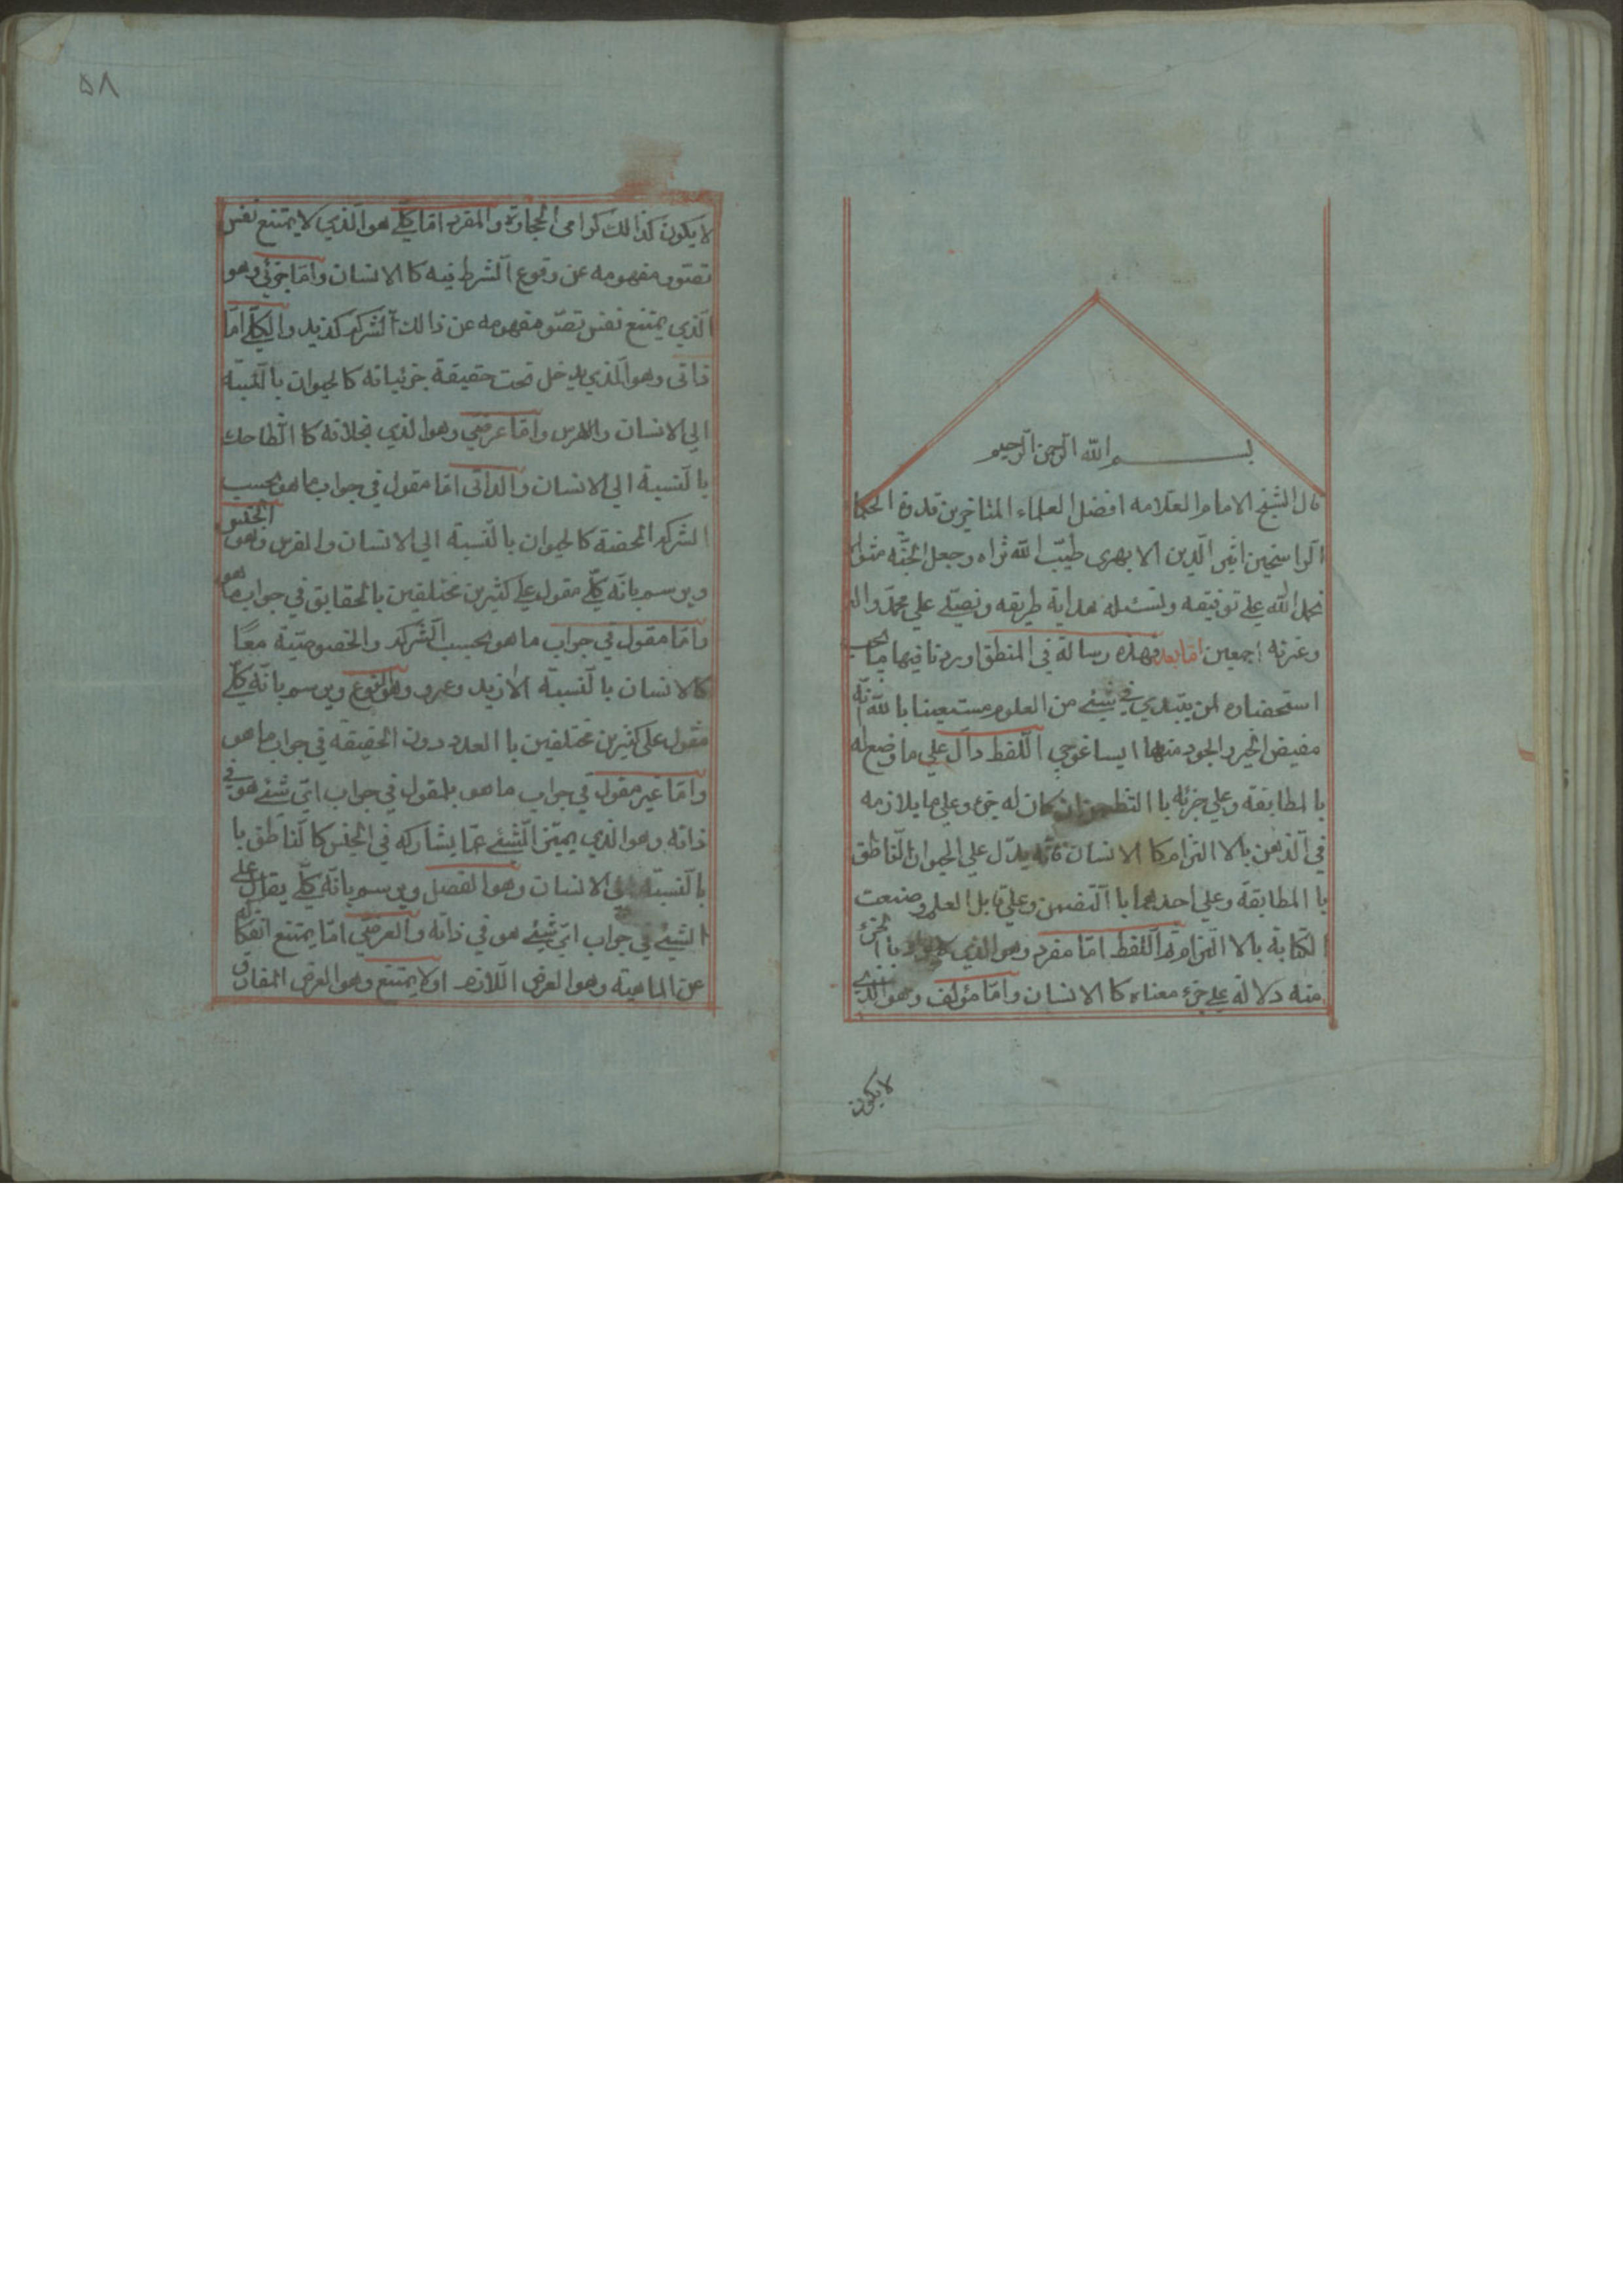 بسم الله الرحمن الرحيم
قال الشيخ الامام العلامه افضل العلماء المتاخرين قدوة الحكما
الراسخين اثير الدين الابهرى طيب الله ثراه وجعل الجنه مثواه
نحمد الله علي توفيقه ونسئله هداية طريقه ونصلي علي محمد واله
وعترته اجمعين اما بعد فهذه رسالة في المنطق اوردنا فيها ما يجب
استحضاره لمن يبتدي في شيئ من العلوم مستعينا با لله انه
مفيض الخير والجود منها ايساغوجي اللفظ دال علي ما وضع له
با لمطابقة وعلي جزئه با التضمن ان كان له جزء وعلي ما يلازمه
في الذهن بالا التزام كا الانسان فانه يدل علي الحيوان الناطق
با المطابقة وعلي احدهما با التضمن وعلي قابل العلم وصنعت
الكتابة بالا التزام ثم اللفظ اما مفرد وهو الذي لا يراد با الجزء
منه دلالة علي جزء معناه كا الانسان واما مؤلف وهو الذي
لا يكون
٥٨
لا يكون كذالك كرامى الحجارة والمفرد اما كلي هو الذي لا يمتنع نفس
تصور مفهومه عن وقوع الشرط فيه كا الانسان واما جزئي وهو
الذي يمتنع نفس تصور مفهومه عن ذالك الشركه كذيد والكلي اما
ذاتى وهو الذي يدخل تحت حقيقة جزئياته كالحيوان بالنسبة
الي الانسان والفرس واما عرضي وهو الذي بخلافه كا الضاحك
بالنسبة الي الانسان والذاتى اما مقول في جواب ما هو بحسب
الشركه المحضة كالحيوان بالنسبة الي الانسان والفرس وهو الجنس
ويرسم بانه كلي مقول علي كثيرين مختلفين بالحقايق في جواب ما هو
واما مقول في جواب ما هو بحسب الشركه والخصوصية معًا
كالانسان بالنسبة الا زيد وعمرو وهو النوع ويرسم بانه كلي
مقول على كثيرين مختلفين با العدد دون الحقيقه في جواب ما هو
واما غير مقول في جواب ما هو بل مقول في جواب اي شئ هو في
ذاته وهو الذي يميز الشئ عما يشاركه في الجنس كا لناطق با
بالنسبة الي الانسان وهو الفصل ويرسم بانه كلي يقال علي
الشيئ في جواب اي شيئ هو في ذاته والعرضي اما يمتنع انفكاكه
عن الماهية وهو العرض اللازم او لا يمتنع وهو العرض المفارق